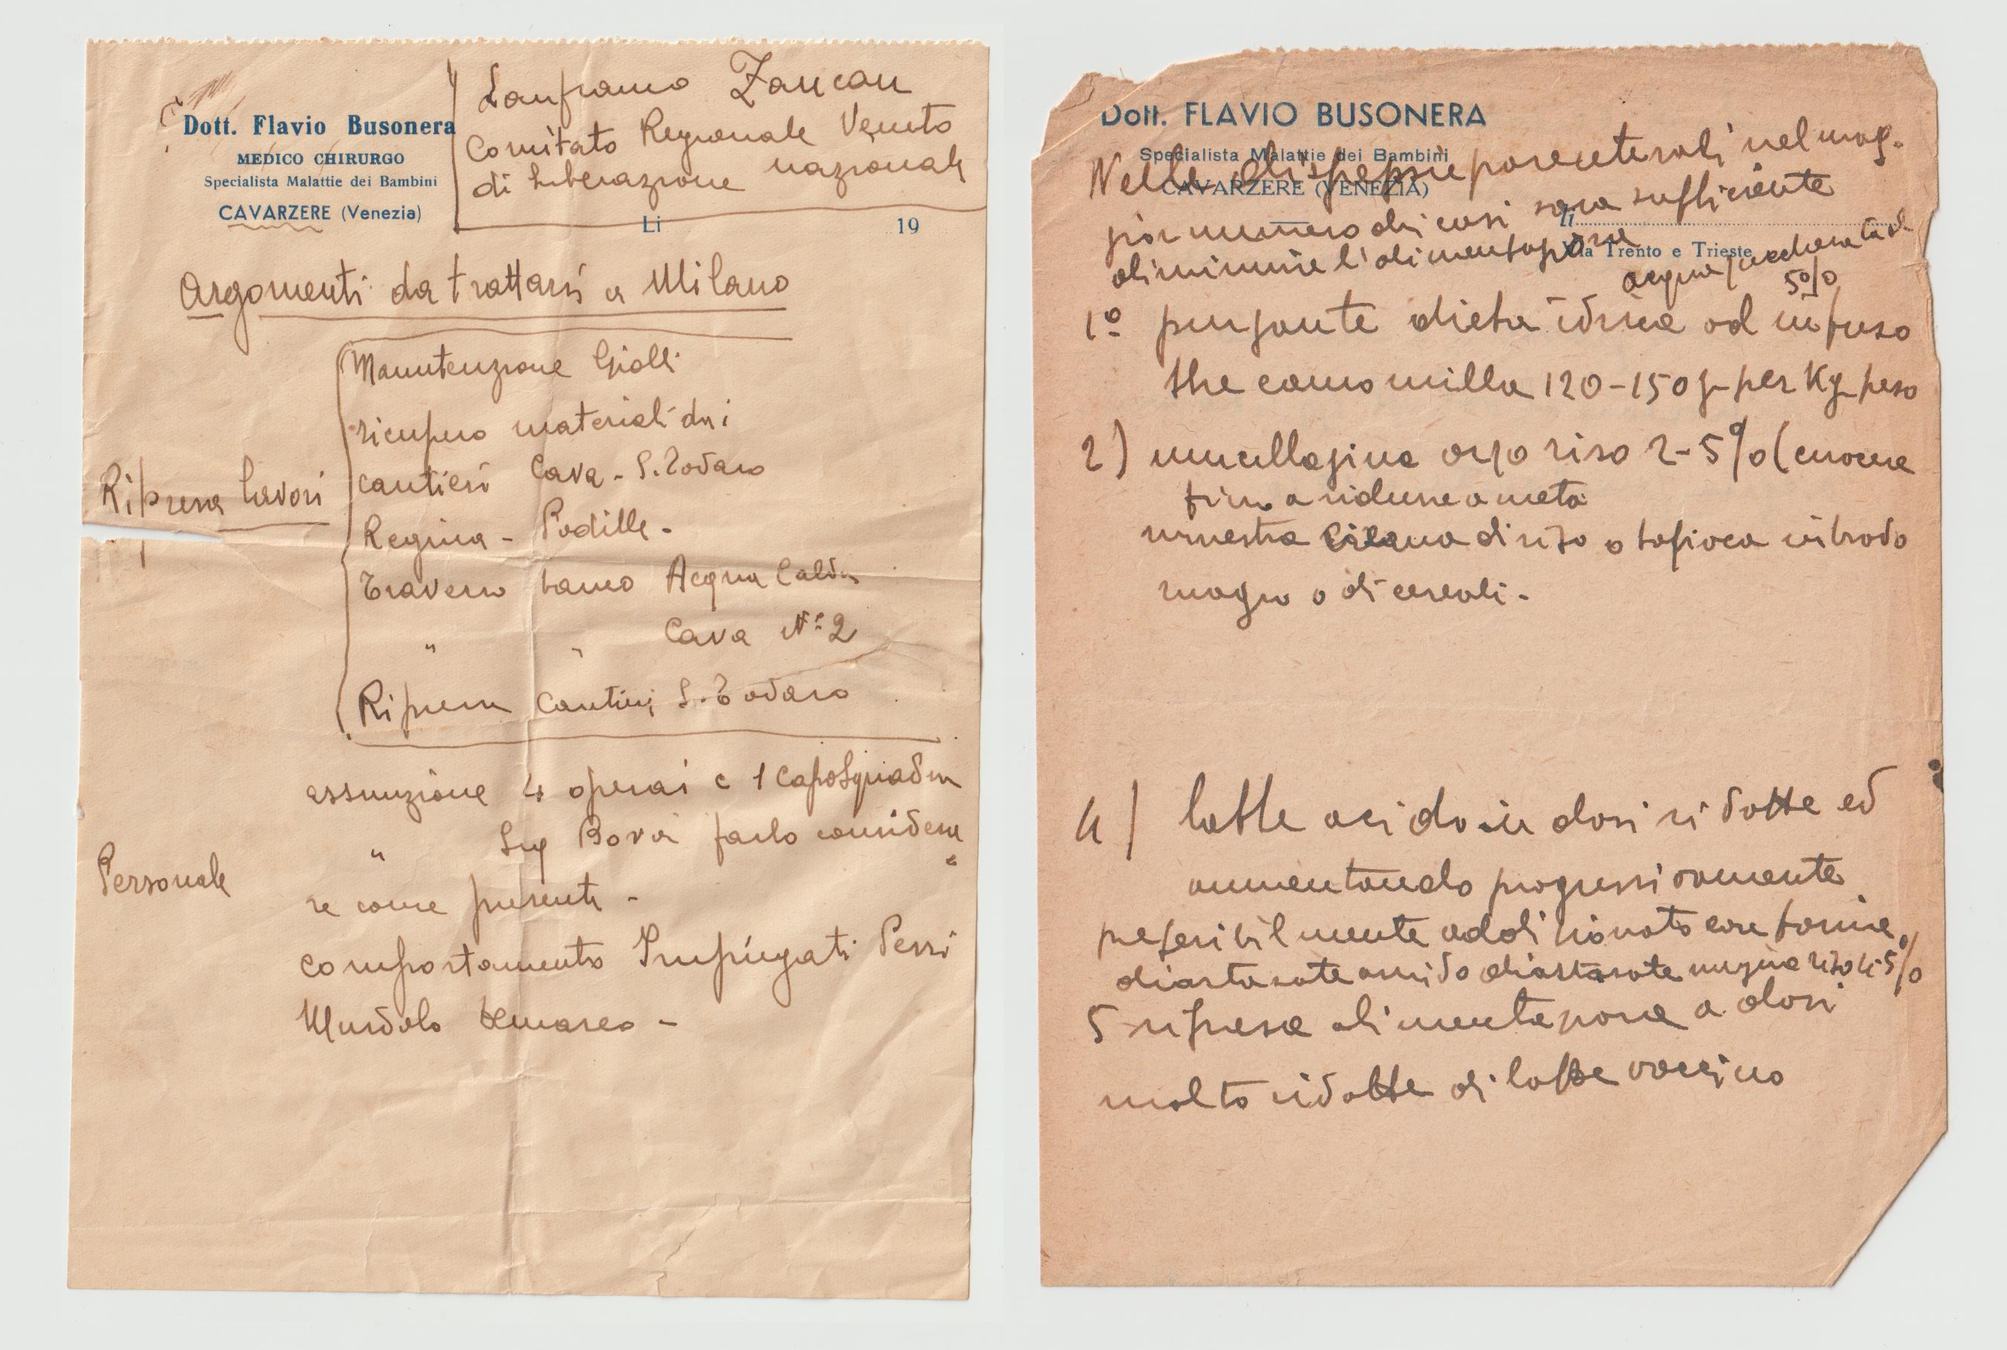 Dott. Flavio Busonera
MEDICO CHIRURGO
Specialista Malattie dei Bambini
CAVARZERE (Venezia)
Lanfranco Zancan
Comitato Regionale Veneto
di liberazione nazionale
Li 19
Argomenti da trattarsi a Milano
Ripresa lavori
Manutenzione
ricupero materiali dai
cantieri Cava - S. Todaro
Regina - Padille -
Traverso banco Acqua Calda
" " Cava N.º 2
Ripresa Cantieri S. Todaro
Personale
assunzione 4 operai e 1 CapoSquadra
" Sig Bovai farlo considera
re come presente -
comportamento Impiegati Pessi
-
Dott. FLAVIO BUSONERA
Specialista Malattie dei Bambini
CAVARZERE (VENEZIA)
li
Via Trento e Trieste
Nelle dispepsie parenterali nel mag-
gior numero di casi sara sufficiente
diminuire l'alimentazione
acqua zuccherata al
5%
1º purgante dieta idrica od infuso
the camomilla 120-150 g per Kg peso
2) mucillagine orzo riso 2-5% (cuocere
fino a ridurre a metà
minestra crema di riso o tapioca in brodo
magro o di cereali.
4) latte acido in dosi ridotte ed
aumentando progressivamente
preferibilmente addizionato con farine
diastasate amido diastasate acqua riso 5%
5 ripresa alimentazione a dosi
molto ridotte di latte vaccino